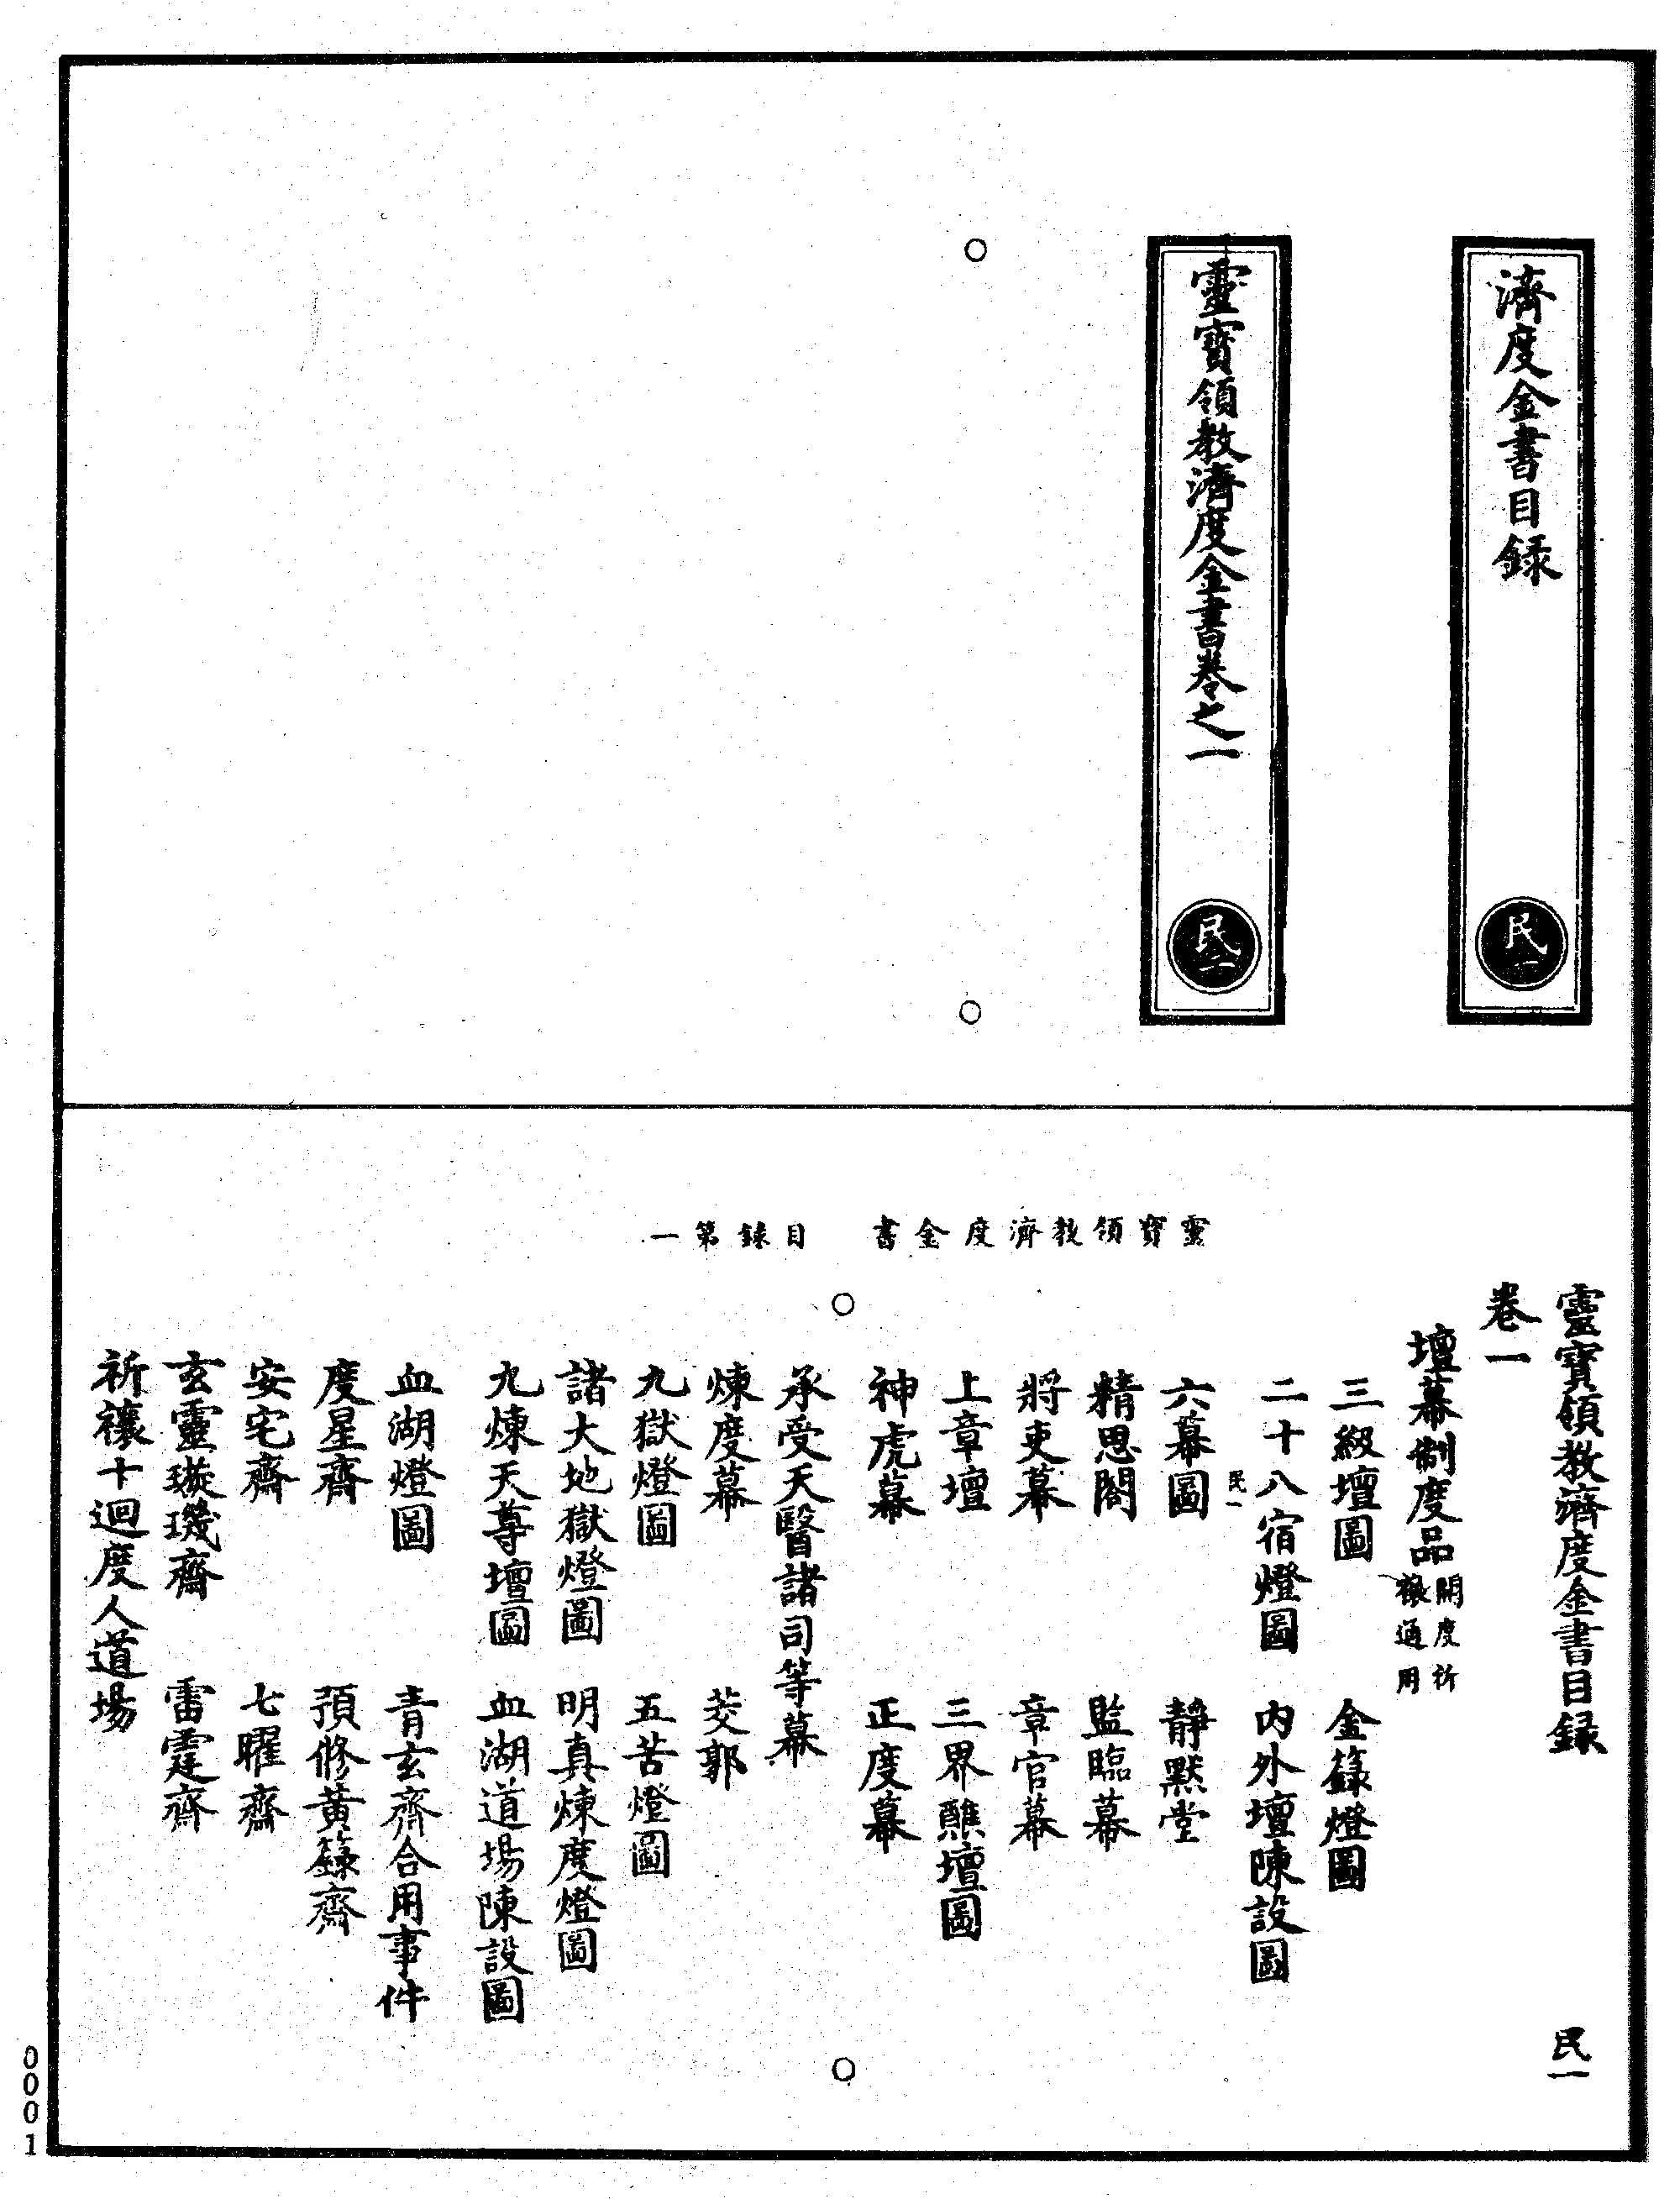 濟度金書目録
民一
靈寶領教濟度金書卷之一
民一
靈寶領教濟度金書　目錄第一
靈寶領教濟度金書目録　民一
卷一
壇幕制度品開度祈禳通用
三級壇圖　金籙燈圖
二十八宿燈圖　内外壇陳設圖
民一
六幕圖　靜默堂
精思閣　監臨幕
將吏幕　章官幕
上章壇　三界醮壇圖
神虎幕　正度幕
承受天醫諸司等幕
煉度幕　茭郭
九獄燈圖　五苦燈圖
諸大地獄燈圖　明真煉度燈圖
九煉天尊壇圖　血湖道場陳設圖
血湖燈圖　青玄齋合用事件
度星齋　預修黃籙齋
安宅齋　七曜齋
玄靈璇璣齋　雷霆齋
祈禳十迴度人道場
00001